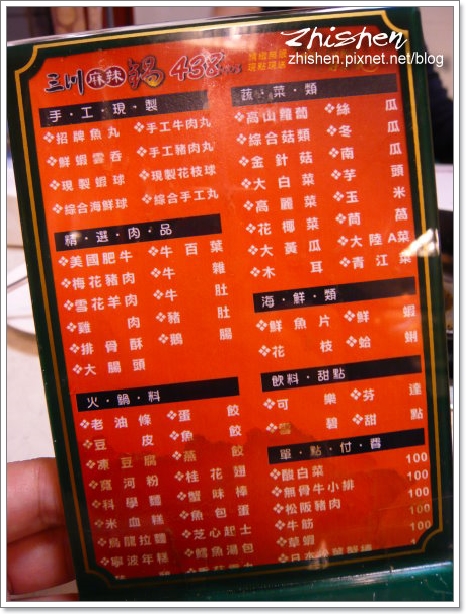 zhishen
zhishen.pixnet.net/blog
三川麻辣鍋 438
手・工・現・製
❖招牌魚丸 ❖手工牛肉丸
❖鮮蝦雲吞 ❖手工豬肉丸
❖現製蝦球 ❖現製花枝球
❖綜合海鮮球 ❖綜合手工丸
精・選・肉・品
❖美國肥牛 ❖牛百葉
❖梅花豬肉 ❖牛雜
❖雪花羊肉 ❖牛肚
❖雞肉 ❖豬肚
❖排骨酥 ❖鴨腸
❖大腸頭
火・鍋・料
❖老油條 ❖蛋餃
❖豆皮 ❖魚餃
❖凍豆腐 ❖燕餃
❖寬河粉 ❖桂花翅
❖科學麵 ❖蟹味棒
❖米血糕 ❖魚包蛋
❖烏龍拉麵 ❖芝心起士
❖寧波年糕 ❖鱈魚湯包
蔬・菜・類
❖高山蘿蔔 ❖絲瓜
❖綜合菇類 ❖冬瓜
❖金針菇 ❖南瓜
❖大白菜 ❖芋頭
❖高麗菜 ❖玉米
❖花椰菜 ❖茼萵
❖大黃瓜 ❖大陸A菜
❖木耳 ❖青江菜
海・鮮・類
❖鮮魚片 ❖鮮蝦
❖花枝 ❖蛤蜊
飲料・甜點
❖可樂 ❖芬達
碧 ❖甜點
單・點・付・費
❖酸白菜 100
❖無骨牛小排 100
❖松阪豬肉 100
❖牛筋 100
❖草蝦 100
100